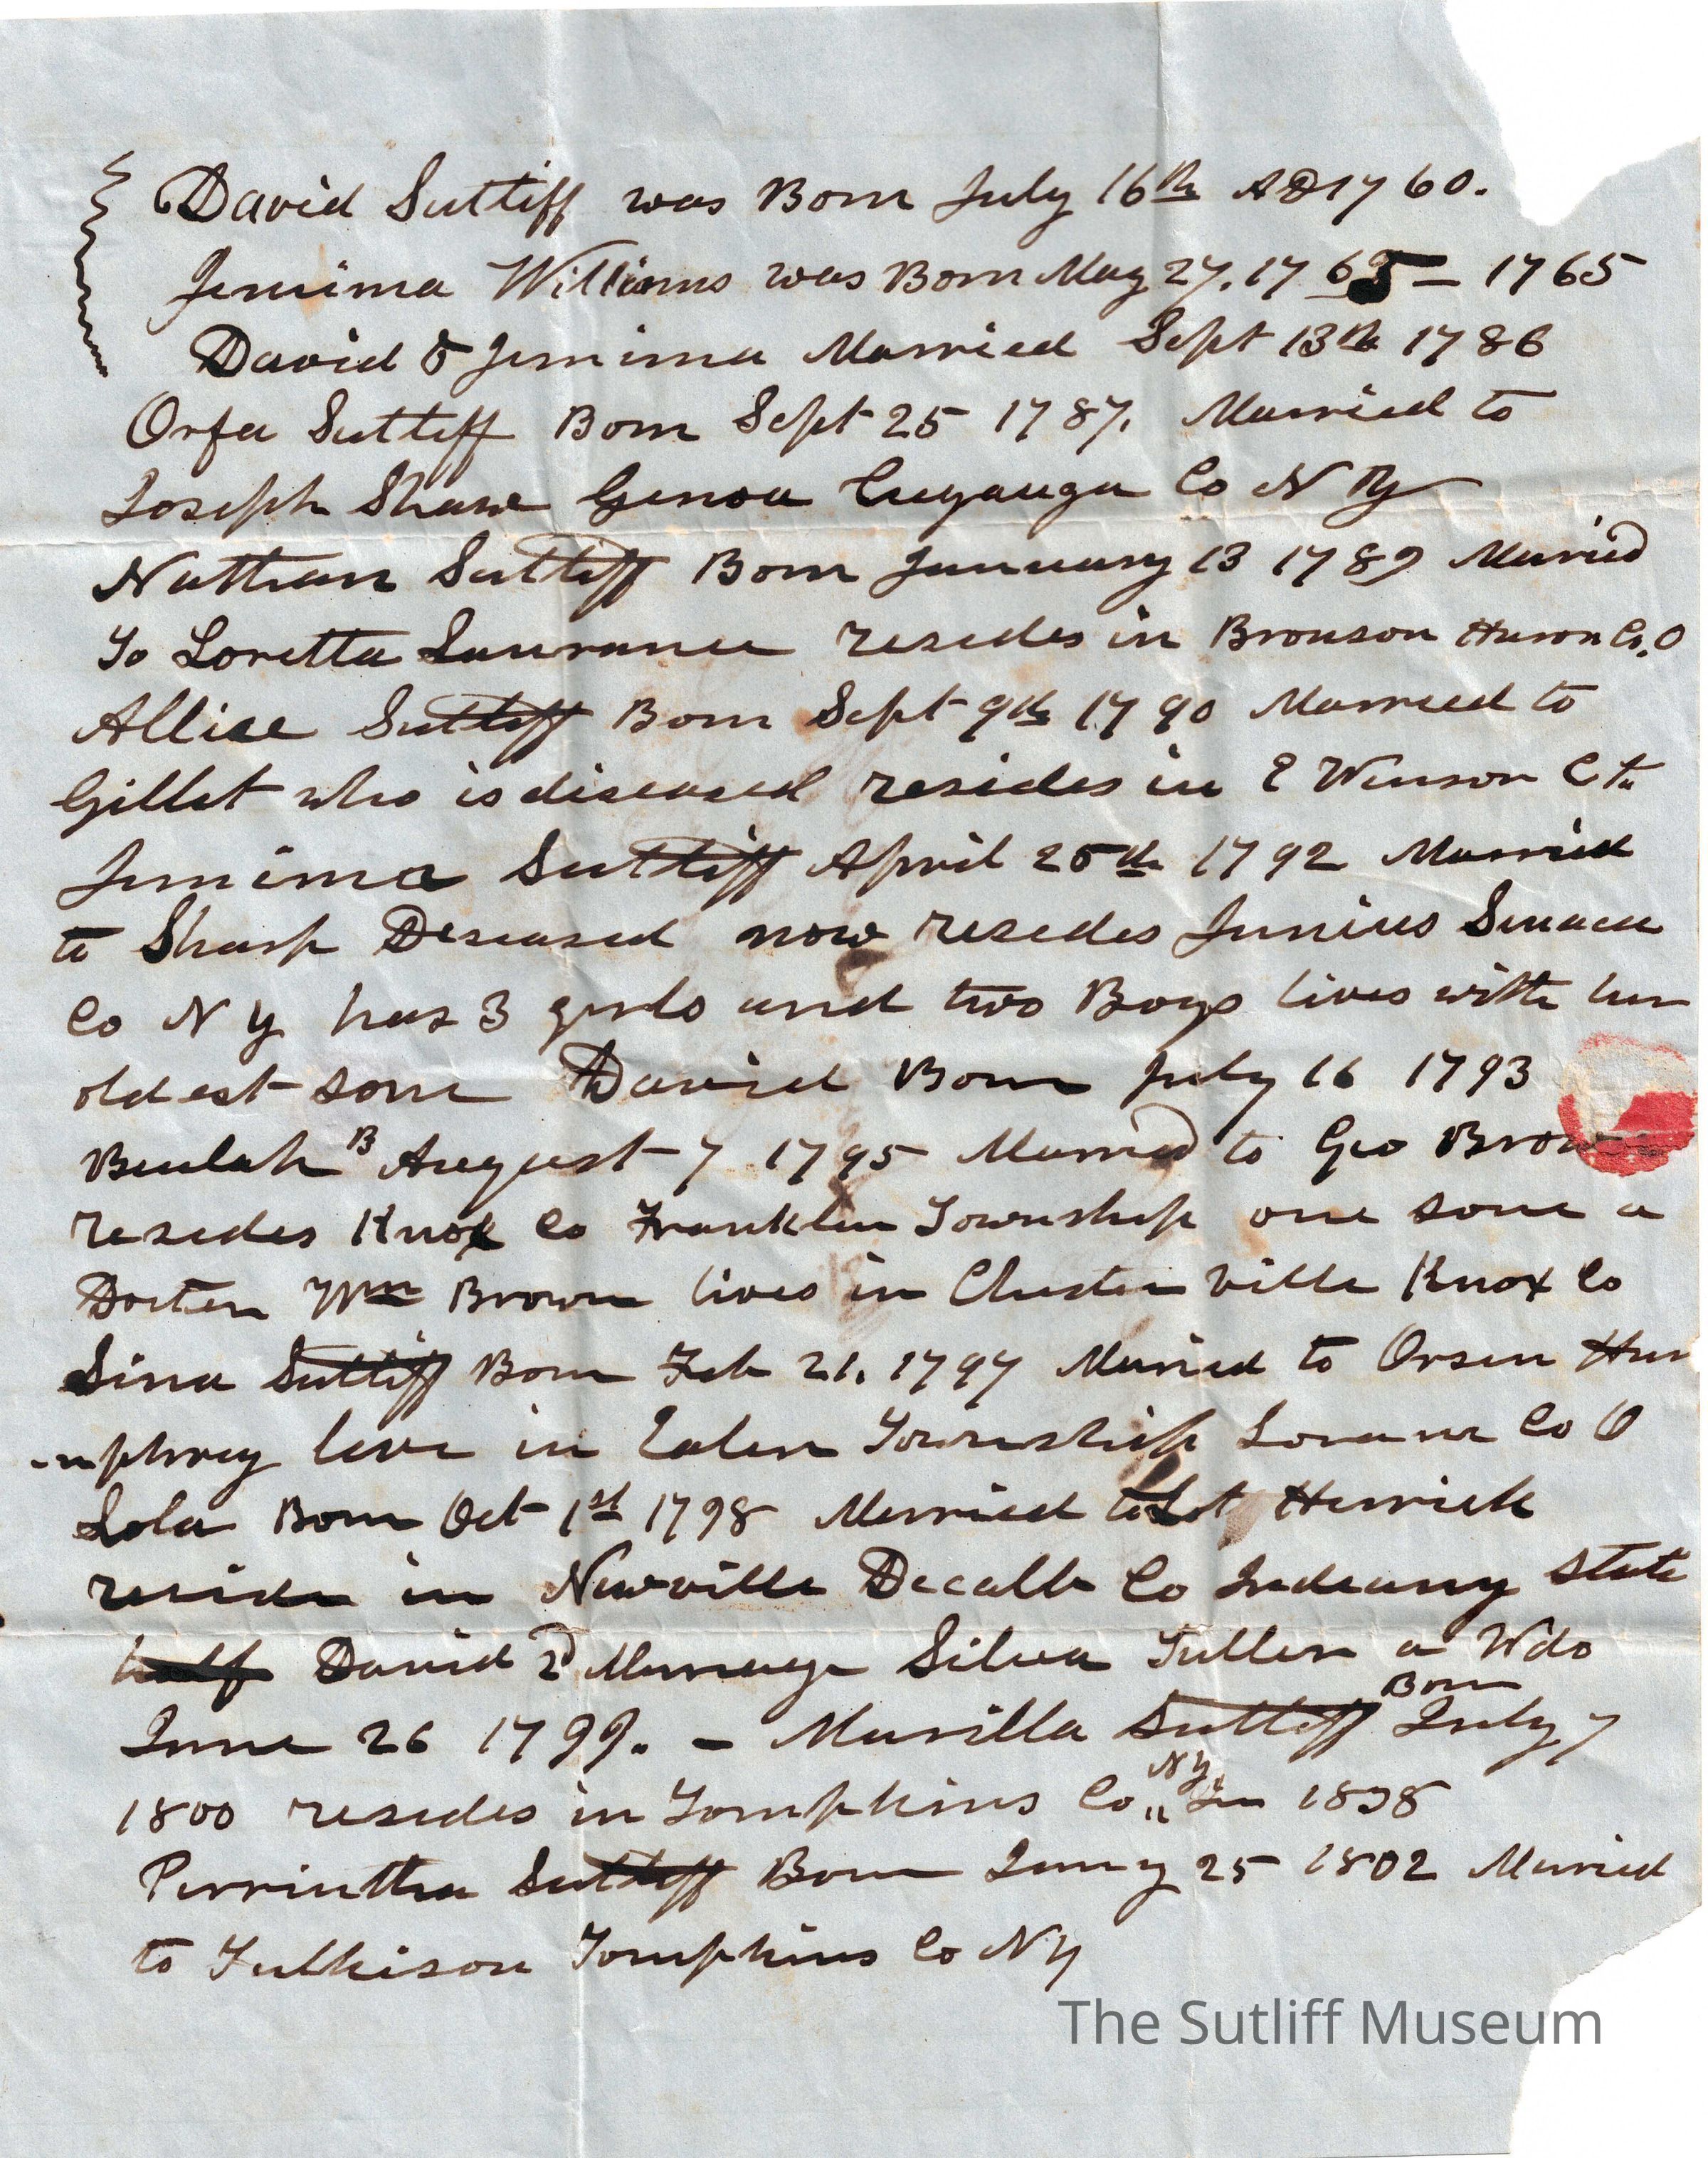 David Sutliff was Born July 16th AD 1760.
Jemima Williams was Born May 27. 1765 — 1765
David & Jemima Married Sept 13th 1786
Orfa Sutliff Born Sept 25 1787. Married to
Joseph Shaw Genoa Cuyauga Co N Y
Nathan Sutliff Born January 13 1789 Married
To Loretta Laurance resedes in Bronson Huron Co. O
Allice Sutliff Born Sept 9th 1790 Married to
Gillet who is diseased resides in E Winson Ct
Jemima Sutliff April 25th 1792 Married
to Sharp Deseased now resedes Junius Senaca
Co N Y has 3 girls and two Boys lives with hur
oldest sone David Born July 16 1793
Beulah B August 7 1795 Married to Geo Brown
resedes Knox Co Franklin Township one sone a
Docter Wm Brown lives in Chester ville Knox Co
Sina Sutliff Born Feb 21. 1797 Maried to Orsen Hum
mphrey live in Township Co O
Lola Born Oct 1st 1798 Married to Lot Herrick
reside in Newville Decalb Co Indeany State
half David 2d Marrage Silva Tuller a Wdo
June 26 1799. – Marilla Sutliff Born July 7
1800 resedes in Tompkins Co " NY. In 1838
Perrintha Sutliff Born Jany 25 1802 Maried
to Fulkison Tompkins Co NY
The Sutliff Museum